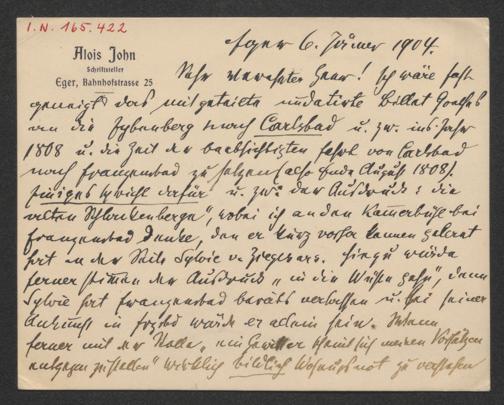 I.N. 165.422
Alois John
Schriftsteller
Eger, Bahnhofstrasse 25
Eger 6. Jänner 1904.
Sehr verehrter Herr! Ich wäre fast
geneigt das mitgeteilte undatirte Billet Goethes
an die Eybenberg nach Carlsbad u. zw. ins Jahr
1808 u. die Zeit der beabsichtigten Fahrt von Carlsbad
nach Franzensbad zu setzen (also Ende August 1808).
Einiges spricht dafür u. zw. der Ausdruck: die
alten Schlackenberge", wobei ich an den Kammerbühl bei
Franzensbad denke, den er kurz vorher kennen gelernt
hat in der Seite Sylvie v. Ziegesars. Hiezu würde
ferner stimmen der Ausdruck „in die Wüste gehn", denn
Sylvie hat Franzensbad bereits verlassen u. bei seiner
Ankunft in Frzbd würde er allein sein.
ferner mit der Stelle, „ein Gewitter scheint sich meinen Vorsätzen
entgegen zu stellen" wirklich bildlich zu verstehen